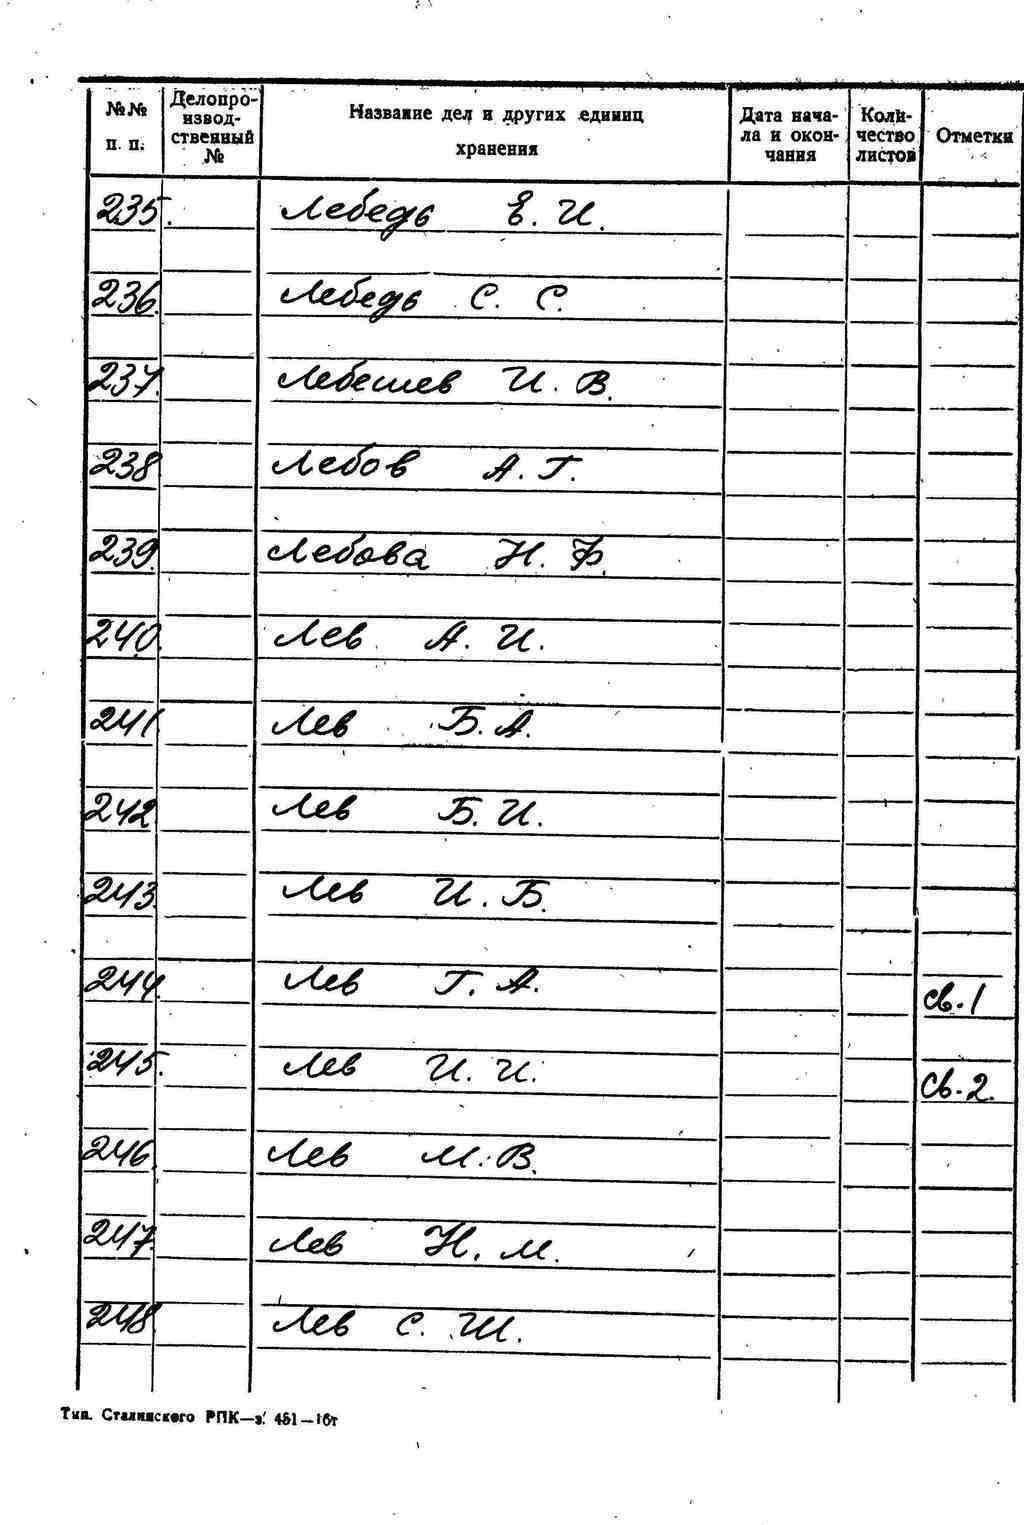 №№ п. п. Делопроизводственный № Название дел и других единиц хранения Дата начала и окончания Количество листов Отметки
235. Лебедь Е. И.
236. Лебедь С. С.
237. Лебешев И. В.
238 Лебов А. Г.
239. Лебова Н. Ф.
240. Лев А. И.
241 Лев Б. А.
242 Лев Б. И.
243. Лев И. Б.
244. Лев Г. А. св. 1
245. Лев И. И. св. 2.
246. Лев М. В.
247. Лев Н. М.
248 Лев С. Ш.
Тип. Сталинского РПК—з. 451—16т